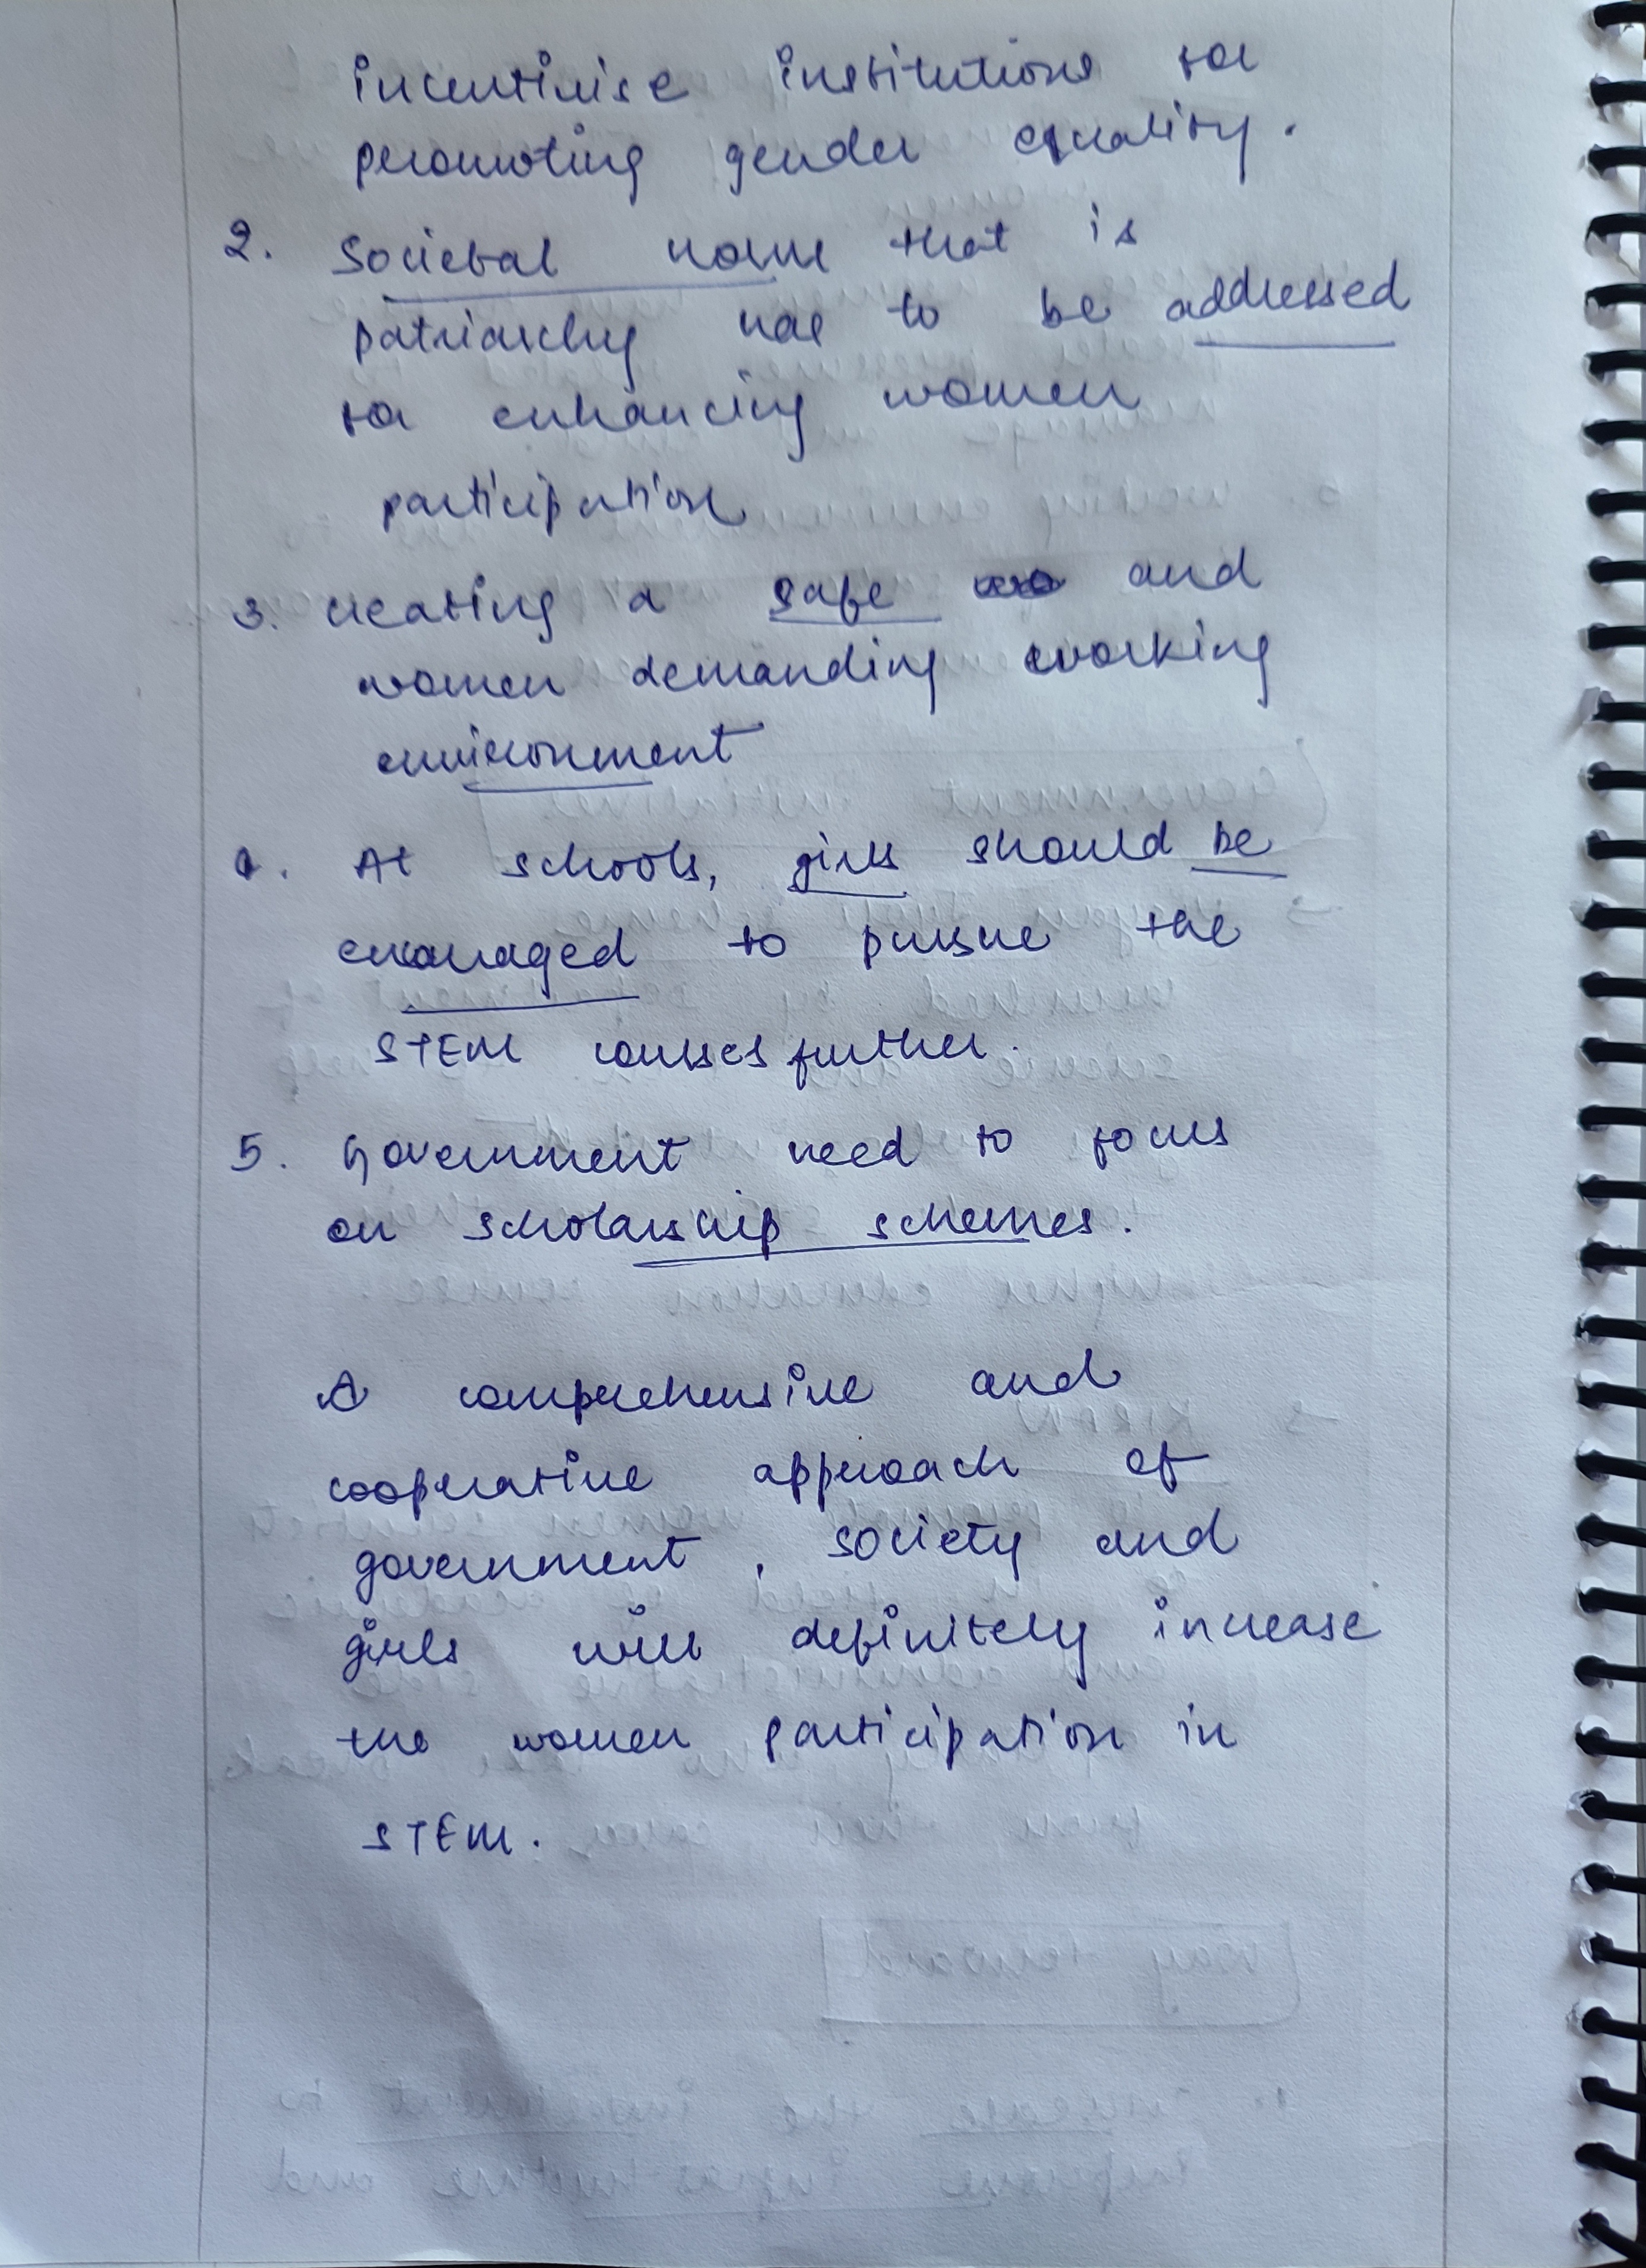 incentivise institutions for
promoting gender equality.
2. Societal norm that is
patriarchy has to be addressed
for enhancing women
participation
3. creating a safe and
women demanding working
environment
4. At schools, girls should be
encouraged to pursue the
STEM courses further.
5. Government need to focus
on scholarship schemes.
A comprehensive and
cooperative approach of
government, society and
girls will definitely increase
the women participation in
STEM.